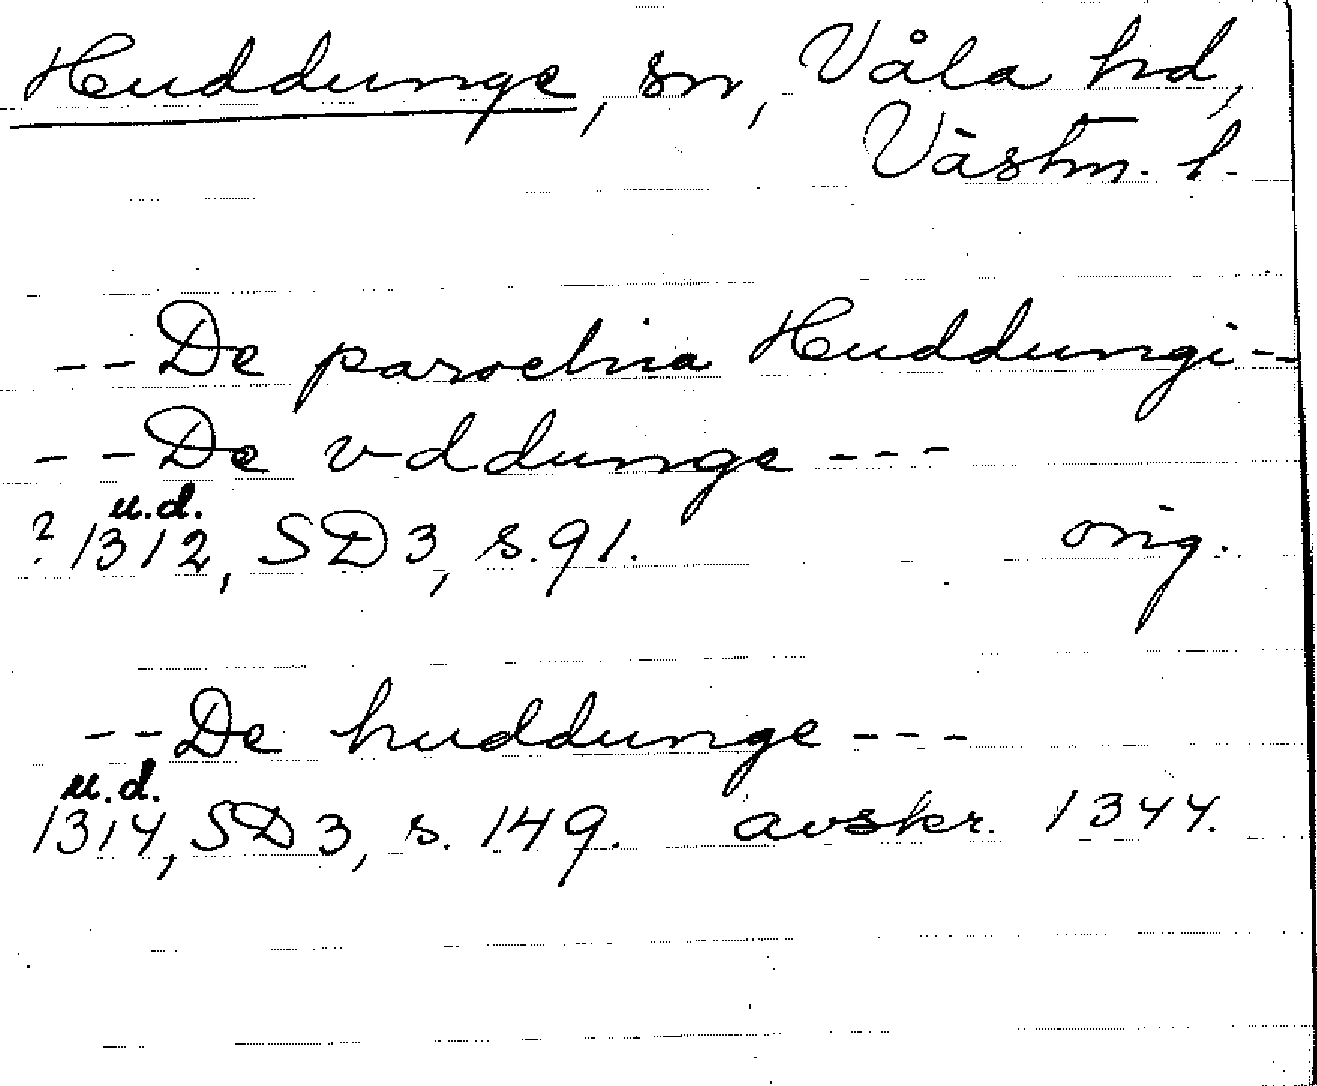 Huddunge, sn, Våla hd,
Västm. l.
--De parochia Huddungi--
--De vddunge---
u.d.
? 1312, SD3, s.91. orig.
--De huddunge---
u.d.
1314, SD3, s. 149. avskr. 1344.